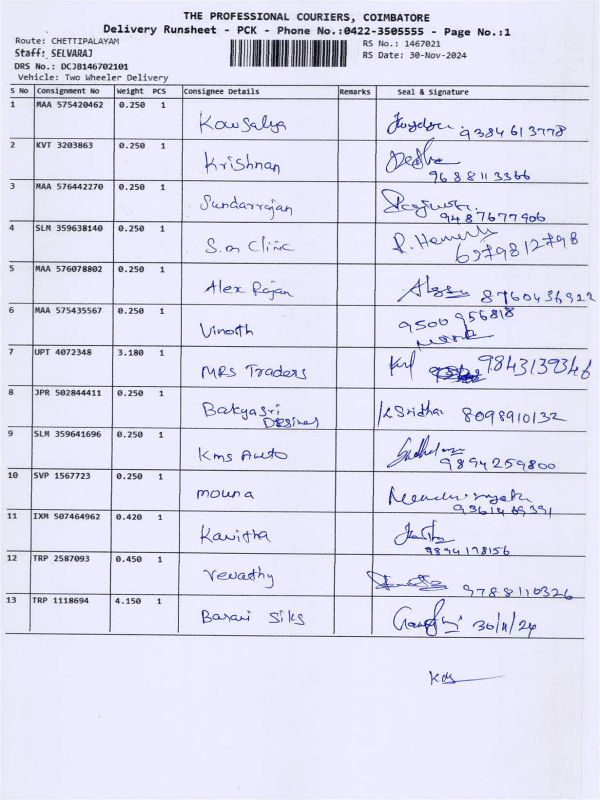 THE PROFESSIONAL COURIERS, COIMBATORE
Delivery Runsheet - PCK - Phone No.:0422-3505555 - Page No.:1
Route: CHETTIPALAYAM RS No.: 1467021
Staff: SELVARAJ RS Date: 30-Nov-2024
DRS No.: DCJB146702101
Vehicle: Two Wheeler Delivery
S No Consignment No Weight PCS Consignee Details Remarks Seal & Signature
1 MAA 575420462 0.250 1 Kowsalya 9384613778
2 KVT 3203863 0.250 1 Krishnan
9688113366
3 MAA 576442270 0.250 1 Sundarrajan
9487677906
4 SLM 359638140 0.250 1 S.m Clinic
6379812798
5 MAA 576078802 0.250 1 Alex Rajan 8760436922
6 MAA 575435567 0.250 1 Vinoth 9500 956818
7 UPT 4072348 3.180 1 MRS Traders 9843139346
8 JPR 502844411 0.250 1 Bakyasri K Sridhar 8098910132
Desines
9 SLM 359641696 0.250 1 Kms Auto
9894259800
10 SVP 1567723 0.250 1 mouna
11 IXM 507464962 0.420 1 Kavitha
9894178156
12 TRP 2587093 0.450 1 revathy 9788110326
13 TRP 1118694 4.150 1 Barani Siks 30/11/24